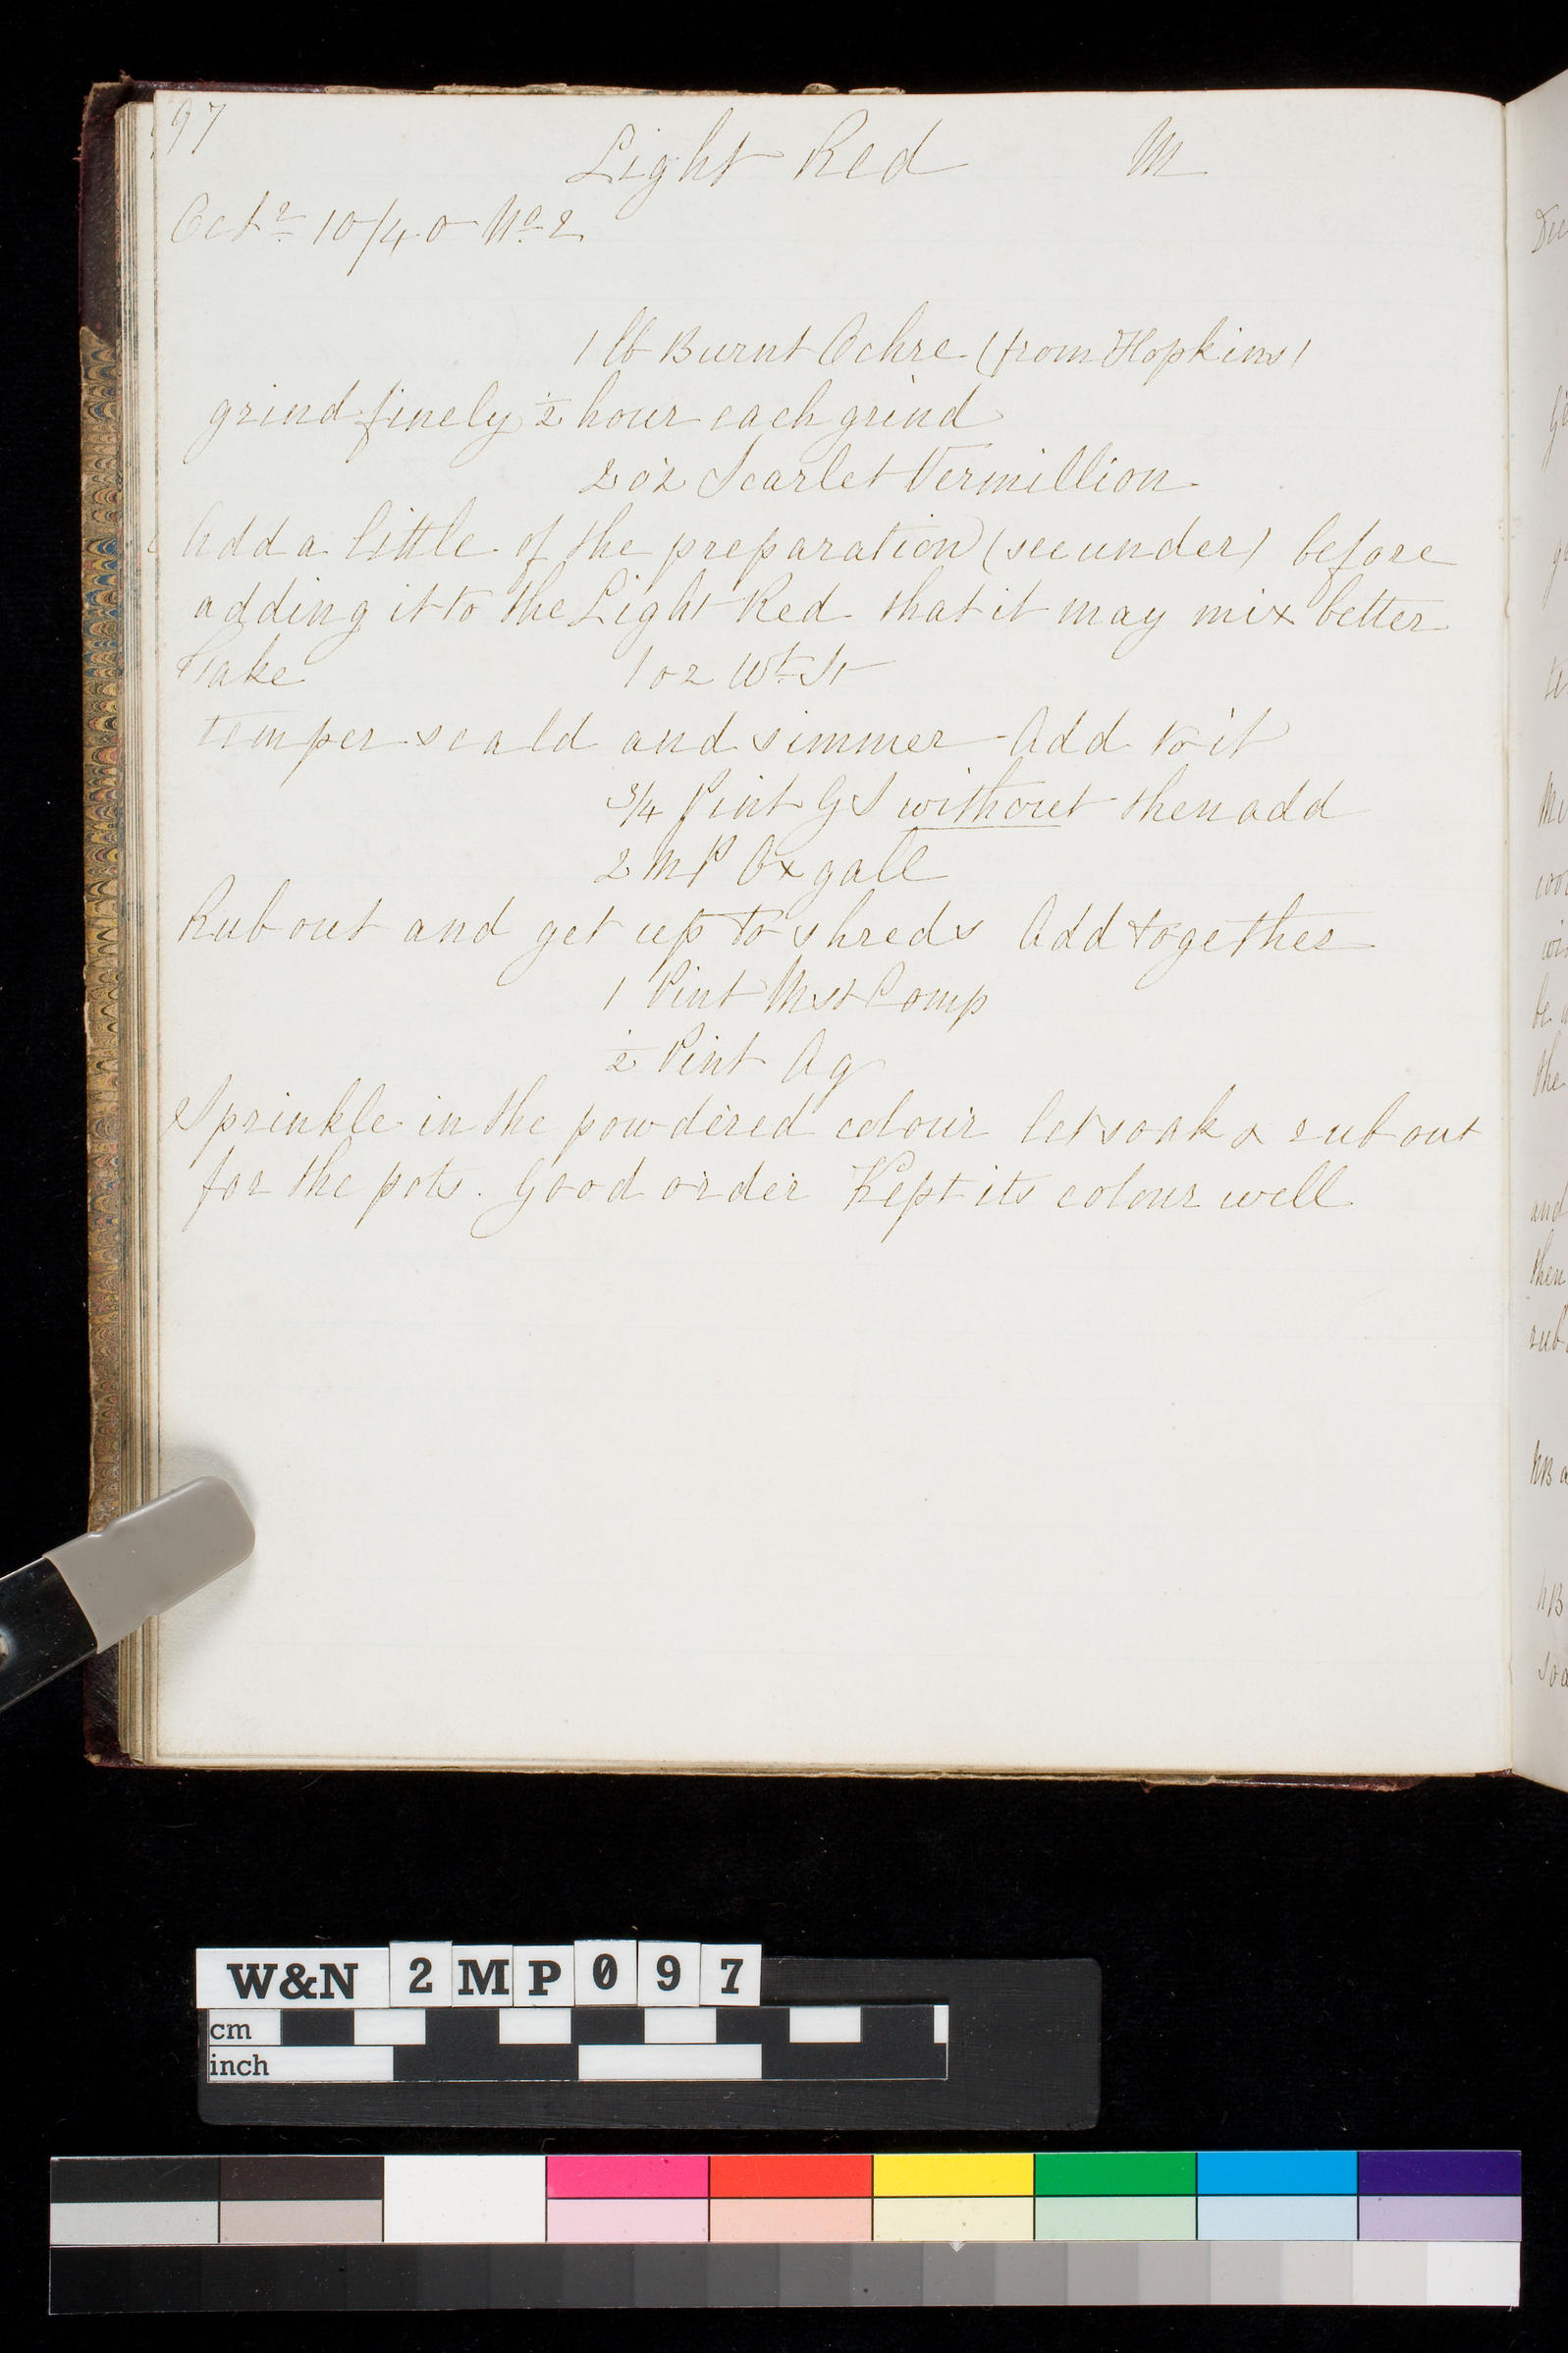 97
Light Red M
Octr 10/40 No 2
1 lb Burnt Ochre (from Hopkins)
grind finely ½ hour each grind
2 oz Scarlet Vermillion
Add a little of the preparation (see under) before
adding it to the Light Red that it may mix better
Take 1 oz Wt St
temper scald and simmer Add to it
3/4 Pint G S without then add
2 M P Ox gall
Rub out and get up to shreds Add together
1 Pint Mst Comp
½ Pint Ag
Sprinkle in the powdered colour let soak & rub out
for the pots. Good order Kept its colour well
W&N 2MP097
cm
inch